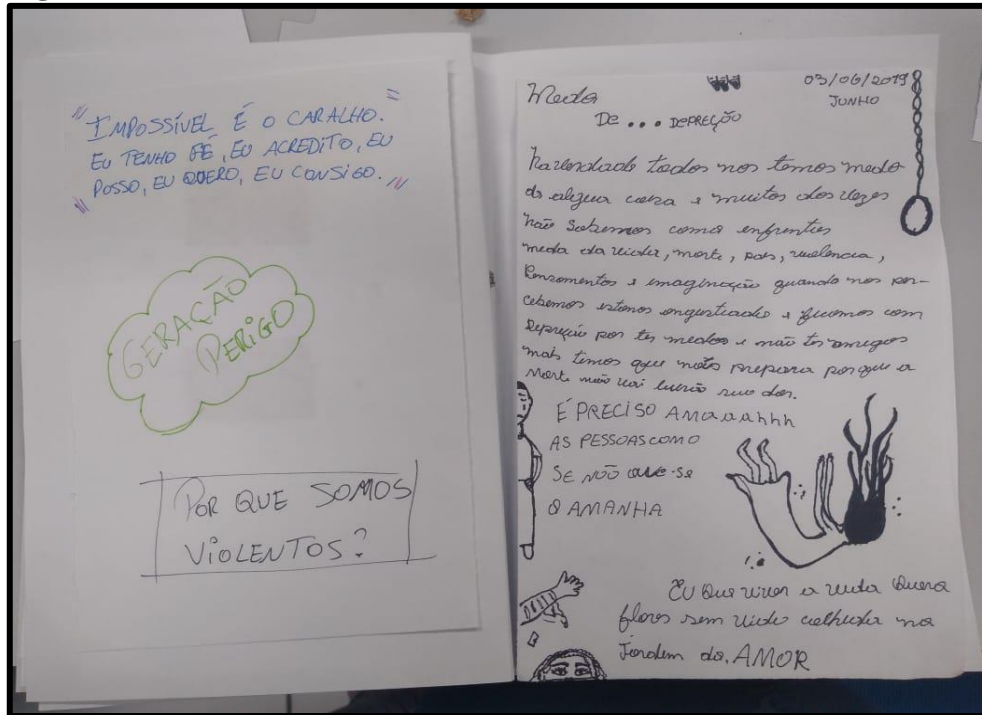 "IMPOSSÍVEL É O CARALHO.
EU TENHO FÉ, EU ACREDITO, EU
POSSO, EU QUERO, EU CONSIGO."
GERAÇÃO
PERIGO
POR QUE SOMOS
VIOLENTOS?
03/06/2019
JUNHO
Medo
De ... DEPREÇÃO
todos nos temos medo
de alguma coisa e muitos das vezes
não Sabemos como
medo da vida, morte, violencia,
Penssomentos e imaginação quando nos per-
cebemos estamos angustiado e ficamos com
Depreção por ter medos e não ter amigos
mais temos que nos prepara porque a
Morte não vai
É PRECISO AMaaaahhh
AS PESSOAS COMO
SE NÕO OUVE-SE
O AMANHA
EU Que viver a vida Quero
flores sem vida na
Jardem do AMOR